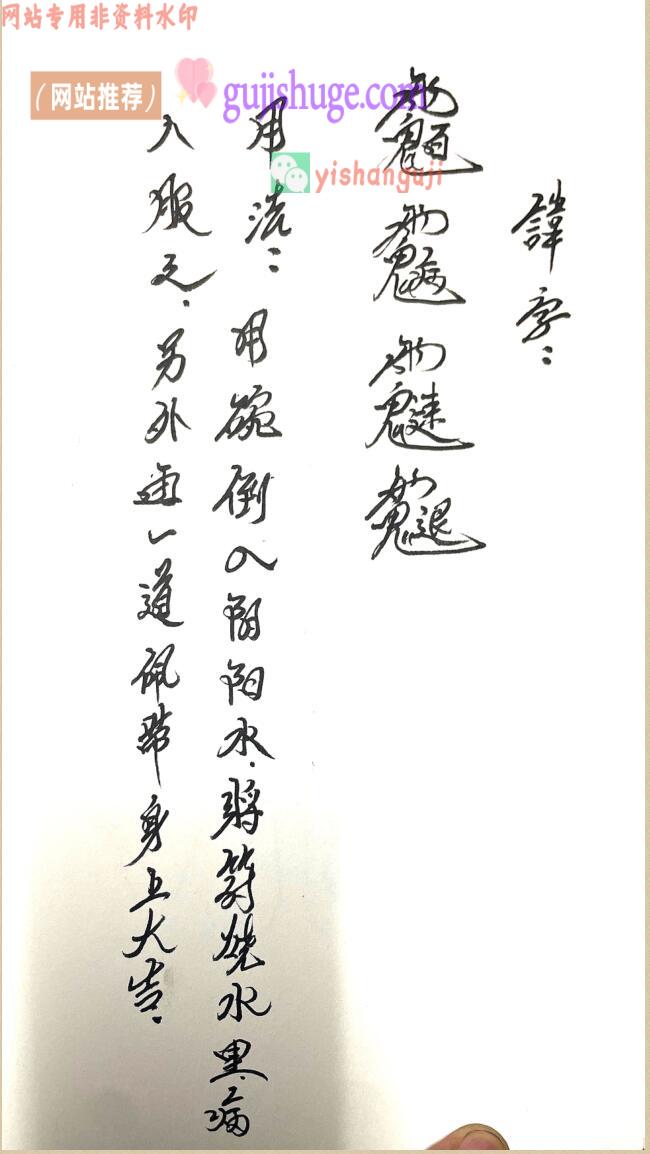 网站专用非资料水印
（网站推荐）
guijishuge.com
yishanguji
諱字：
用法：用碗倒入阴阳水，将符烧水里，病
人服之，另外画一道佩带身上大吉。